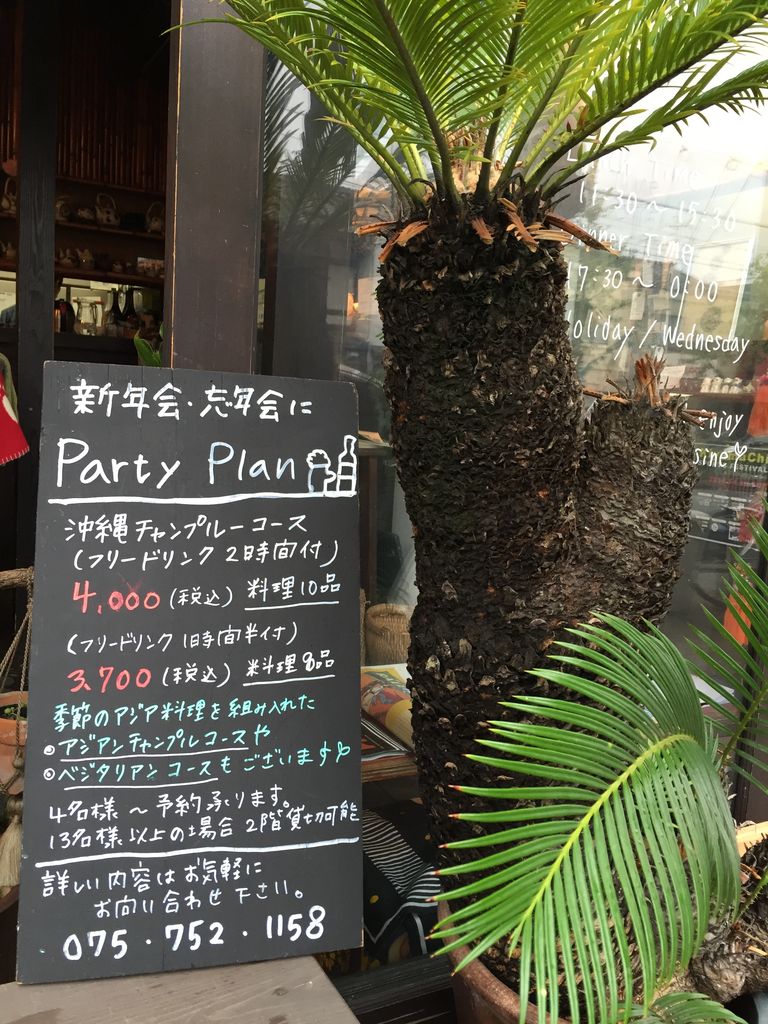 新年会・忘年会に
Party Plan
沖縄チャンプルーコース
(フリードリンク 2時間付)
4,000 (税込) 料理10品
(フリードリンク 1時間半付)
3,700 (税込) 料理8品
季節のアジア料理を組み入れた
◎アジアンチャンプルコースや
◎ベジタリアンコースもございます
4名様～予約承ります。
13名様以上の場合 2階貸切可能
詳しい内容はお気軽に
お問い合わせ下さい。
075・752・1158
Lunch Time
11:30～15:30
Dinner Time
17:30～0:00
Holiday / Wednesday
enjoy